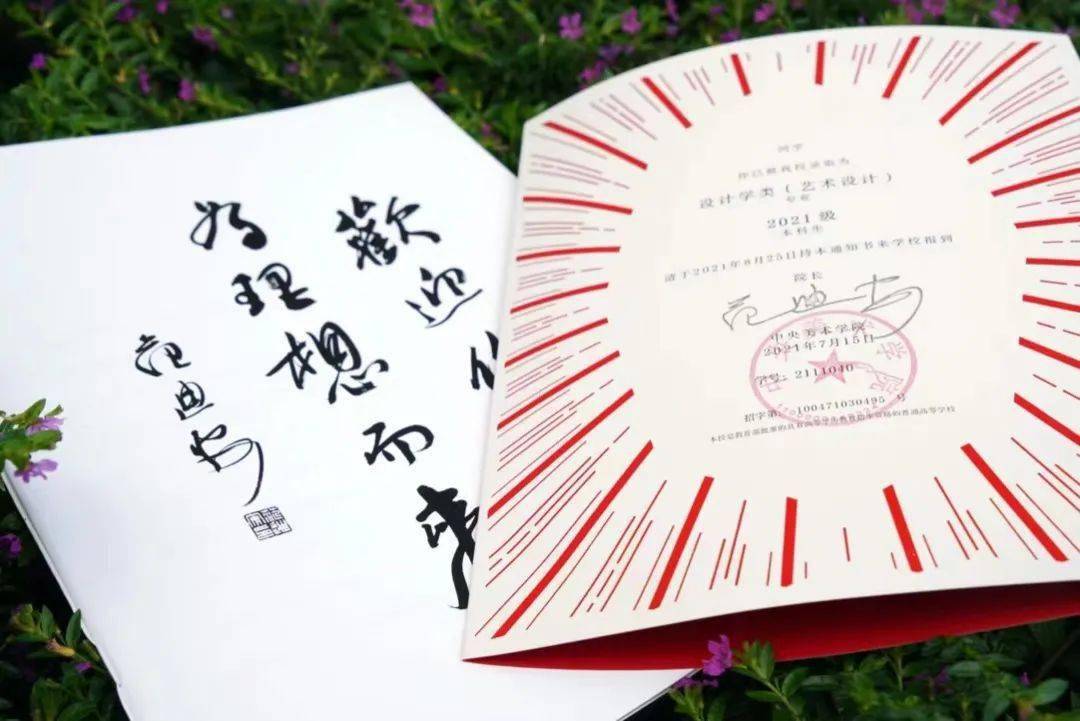 歡迎
为理想而来
范迪安
同学
你已被我校录取为
设计学类(艺术设计)
专业
2021 级
本科生
请于2021年8月25日持本通知书来学校报到
院长
范迪安
中央美术学院
2021年7月15日
学号: 2111040
招字第: 100471030495 号
本校是教育部批准的具有高等学历教育招生资格的普通高等学校